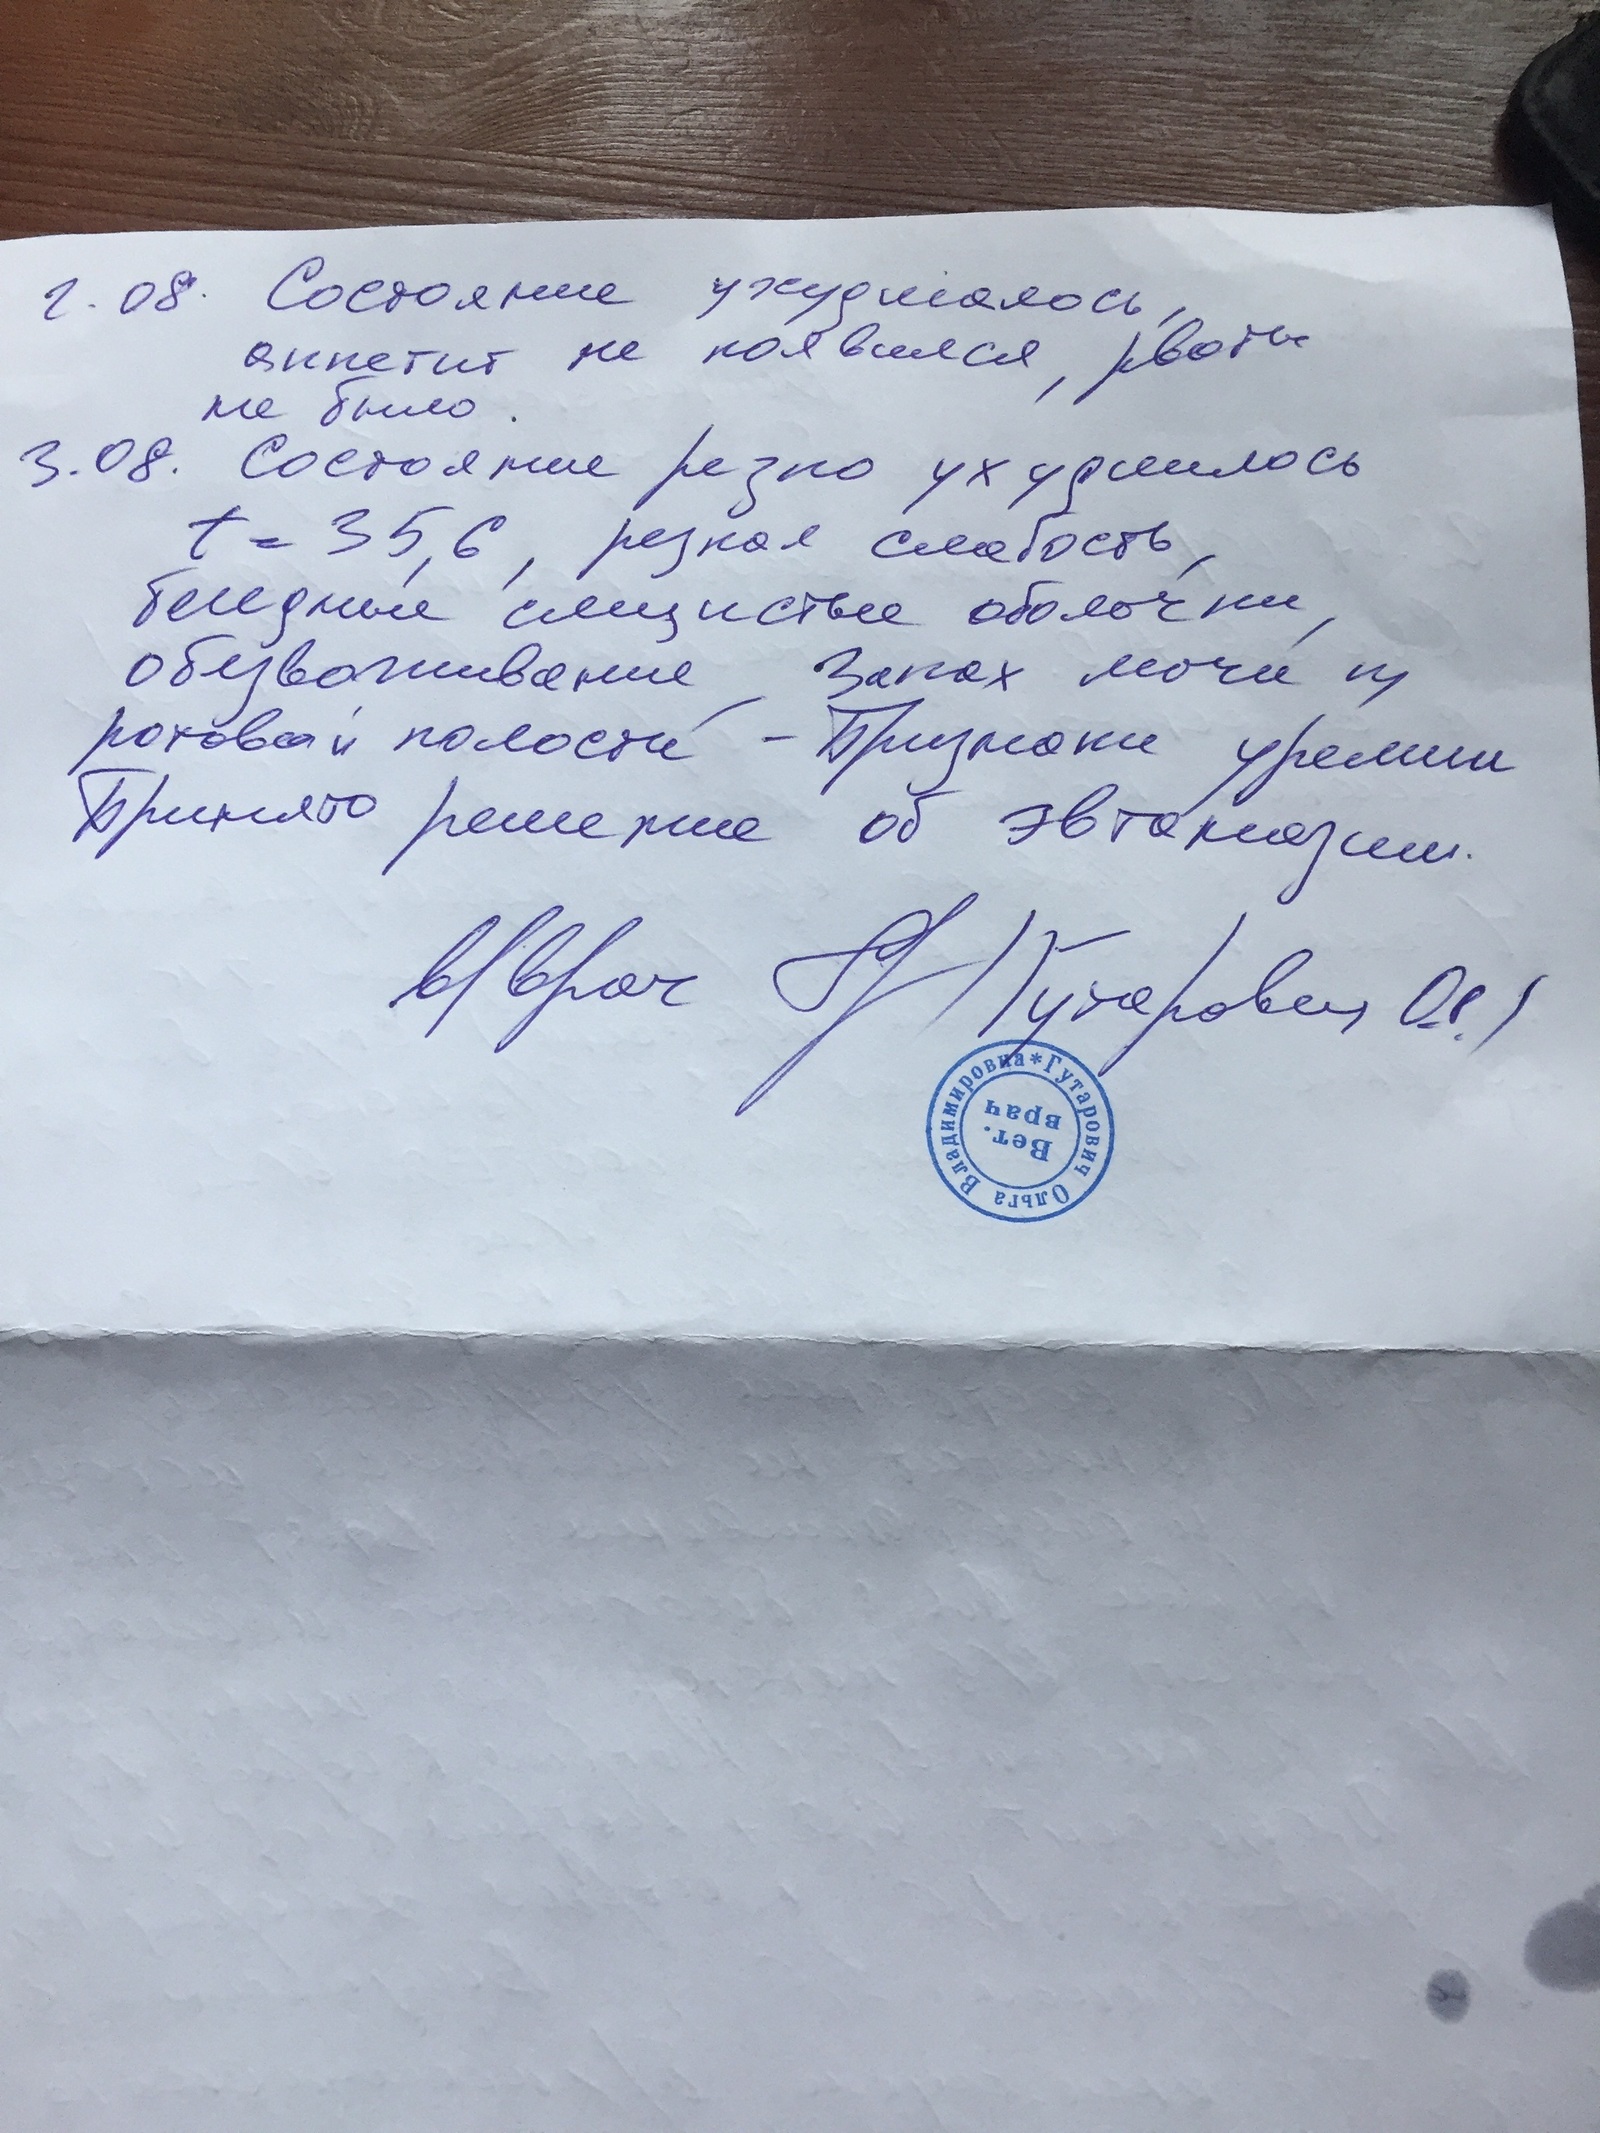 2.08. Состояние ухудшалось,
аппетит не появился, рвоты
не было.
3.08. Состояние резко ухудшилось
t = 35,6, резкая слабость,
бледные слизистые оболочки,
обезвоживание, запах мочи из
ротовой полости - Признаки уремии
Принято решение об эвтаназии.
в/врач /Гутарович О.В./
Гутарович Ольга Владимировна *
Вет.
врач